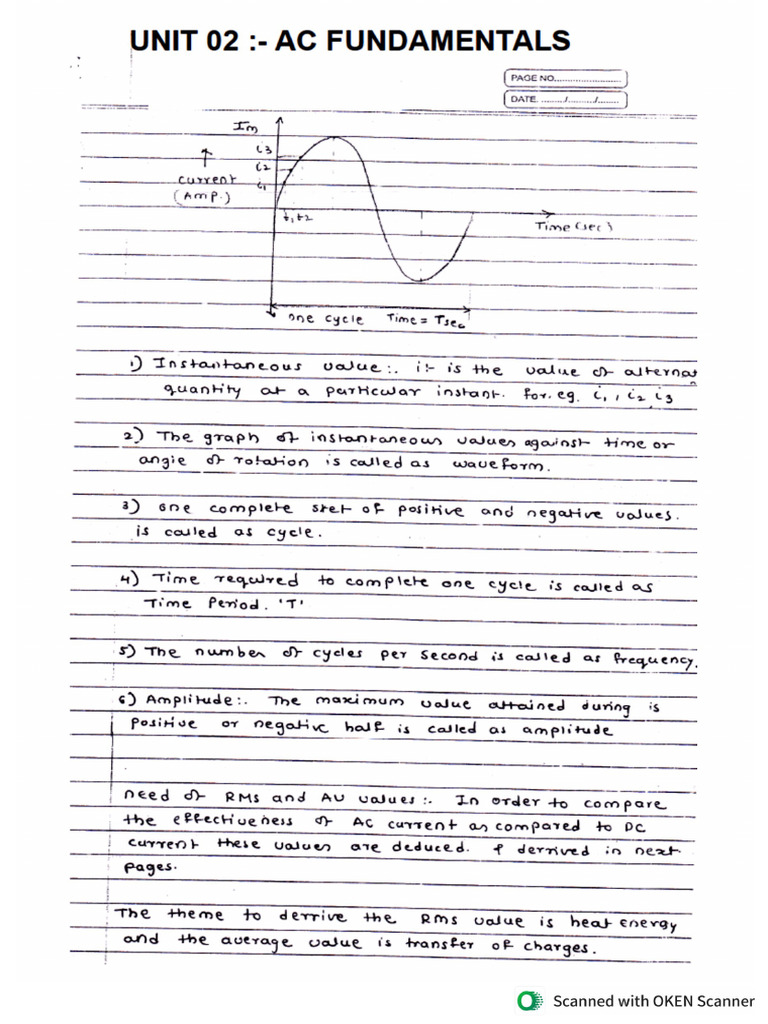 UNIT 02 :- AC FUNDAMENTALS
PAGE NO.......................
DATE. ........./........./.......
Im
i3
i2
i1
Current
(Amp.)
t1 t2
Time (sec)
one cycle Time = Tsec
1) Instantaneous value:. i:- is the value of alternat
quantity at a particular instant. for. eg. i1, i2, i3
2) The graph of instantaneous values against time or
angle of rotation is called as waveform.
3) one complete stet of positive and negative values.
is called as cycle.
4) Time required to complete one cycle is called as
Time Period. 'T'
5) The number of cycles per second is called as frequency.
6) Amplitude:. The maximum value attained during is
positive or negative half is called as amplitude
need of RMS and AV values:. In order to compare
the effectiveness of AC current as compared to DC
current these values are deduced. & derrived in next
pages.
The theme to derrive the RMS value is heat energy
and the average value is transfer of charges.
Scanned with OKEN Scanner